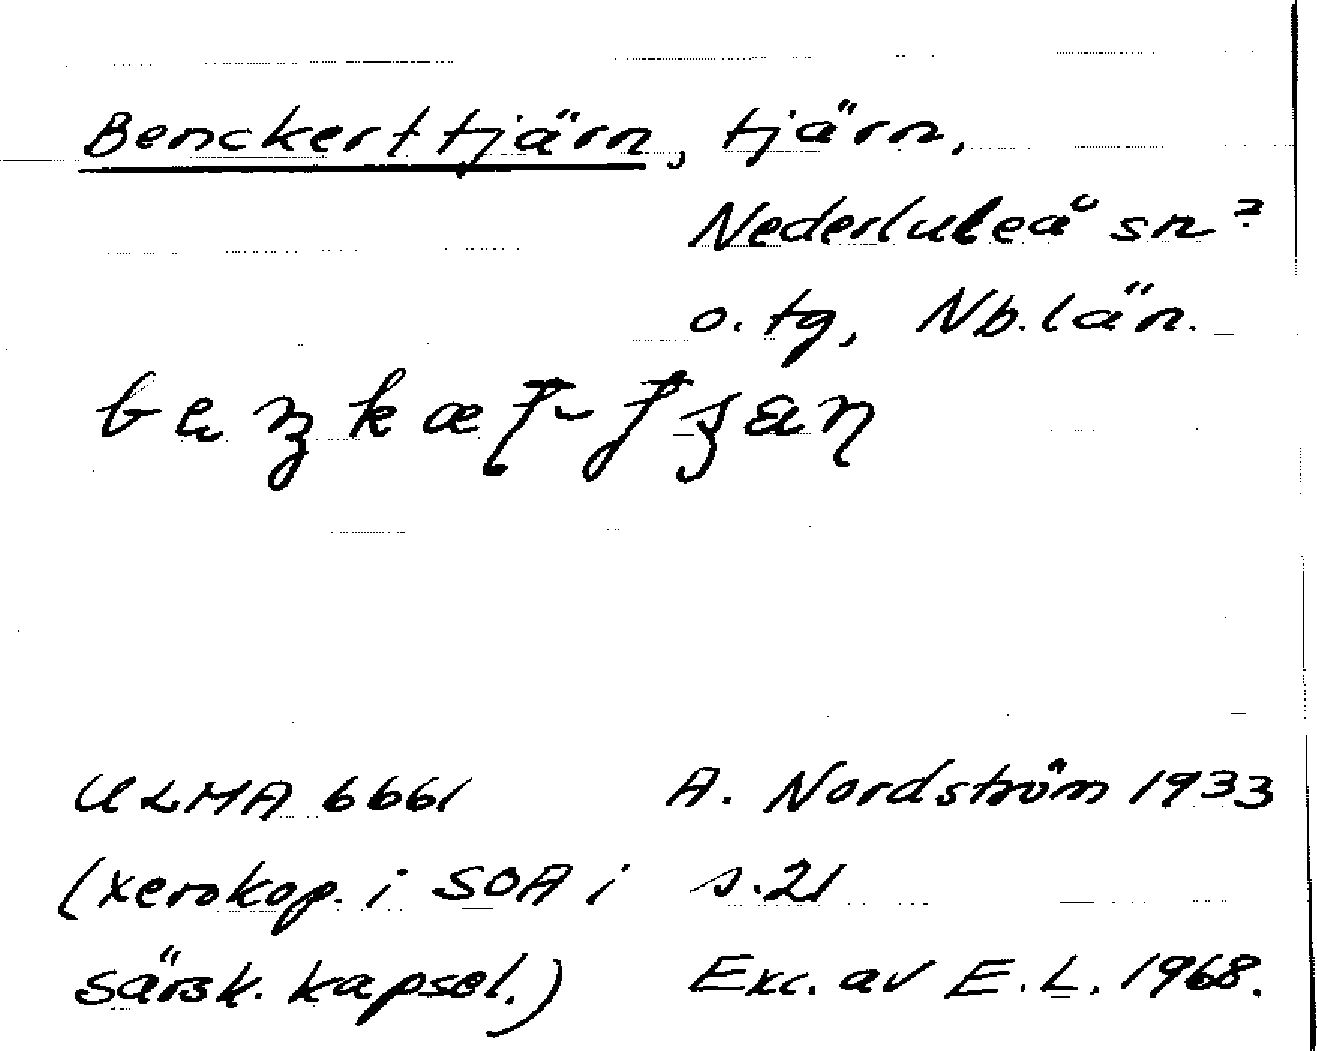 Benckerttjärn, tjärn,
Nederluleå sn?
o. tg, Nb. län.
ULMA 6661 A. Nordström 1933
(xerokop. i SOA i s. 21
särsk. kapsel.) Exc. av E. L. 1968.